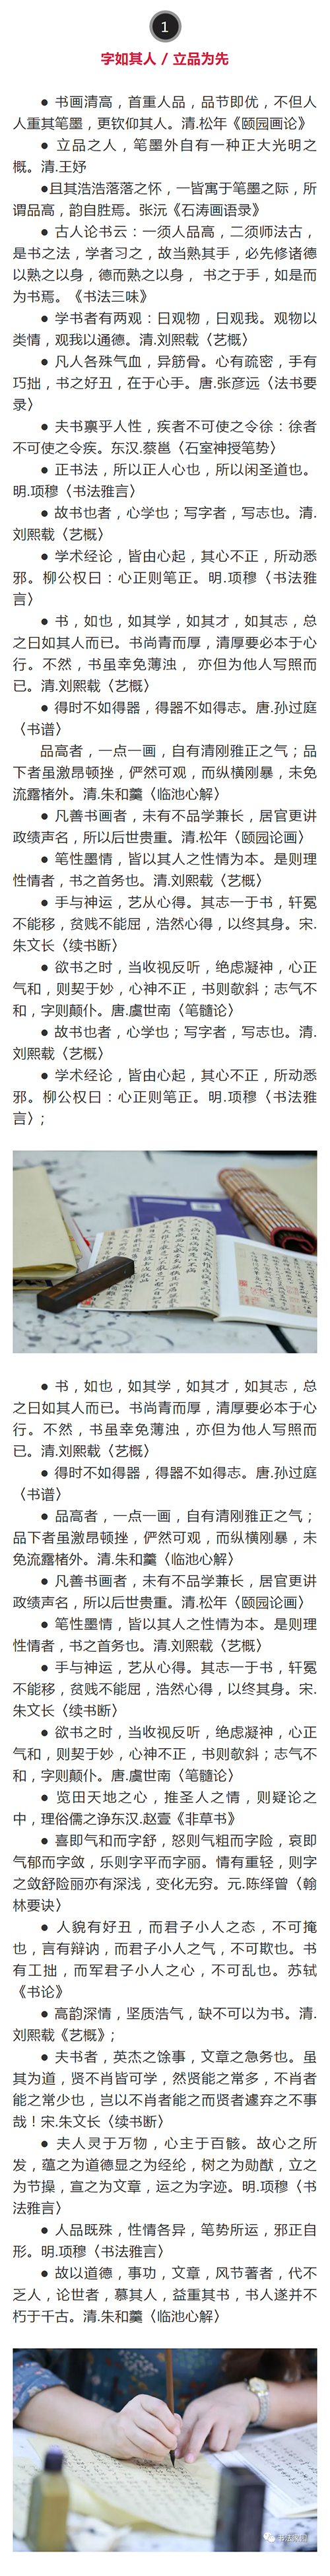 1
字如其人 / 立品为先
● 书画清高，首重人品，品节即优，不但人
人重其笔墨，更钦仰其人。清.松年《颐园画论》
● 立品之人，笔墨外自有一种正大光明之
概。清.王妤
●且其浩浩落落之怀，一皆寓于笔墨之际，所
谓品高，韵自胜焉。张沅《石涛画语录》
● 古人论书云：一须人品高，二须师法古，
是书之法，学者习之，故当熟其手，必先修诸德
以熟之以身，德而熟之以身， 书之于手，如是而
为书焉。《书法三味》
● 学书者有两观：曰观物，曰观我。观物以
类情，观我以通德。清.刘熙载〈艺概〉
● 凡人各殊气血，异筋骨。心有疏密，手有
巧拙，书之好丑，在于心手。唐.张彦远〈法书要
录〉
● 夫书禀乎人性，疾者不可使之令徐：徐者
不可使之令疾。东汉.蔡邕〈石室神授笔势〉
● 正书法，所以正人心也，所以闲圣道也。
明.项穆〈书法雅言〉
● 故书也者，心学也；写字者，写志也。清.
刘熙载〈艺概〉
● 学术经论，皆由心起，其心不正，所动悉
邪。柳公权曰：心正则笔正。明.项穆〈书法雅
言〉
● 书，如也，如其学，如其才，如其志，总
之曰如其人而已。书尚青而厚，清厚要必本于心
行。不然，书虽幸免薄浊， 亦但为他人写照而
已。清.刘熙载〈艺概〉
● 得时不如得器，得器不如得志。唐.孙过庭
〈书谱〉
品高者，一点一画，自有清刚雅正之气；品
下者虽激昂顿挫，俨然可观，而纵横刚暴，未免
流露楮外。清.朱和羹〈临池心解〉
● 凡善书画者，未有不品学兼长，居官更讲
政绩声名，所以后世贵重。清.松年〈颐园论画〉
● 笔性墨情，皆以其人之性情为本。是则理
性情者，书之首务也。清.刘熙载〈艺概〉
● 手与神运，艺从心得。其志一于书，轩冕
不能移，贫贱不能屈，浩然心得，以终其身。宋.
朱文长〈续书断〉
● 欲书之时，当收视反听，绝虑凝神，心正
气和，则契于妙，心神不正，书则欹斜；志气不
和，字则颠仆。唐.虞世南〈笔髓论〉
● 故书也者，心学也；写字者，写志也。清.
刘熙载〈艺概〉
● 学术经论，皆由心起，其心不正，所动悉
邪。柳公权曰：心正则笔正。明.项穆〈书法雅
言〉；
● 书，如也，如其学，如其才，如其志，总
之曰如其人而已。书尚青而厚，清厚要必本于心
行。不然，书虽幸免薄浊，亦但为他人写照而
已。清.刘熙载〈艺概〉
● 得时不如得器，得器不如得志。唐.孙过庭
〈书谱〉
● 品高者，一点一画，自有清刚雅正之气；
品下者虽激昂顿挫，俨然可观，而纵横刚暴，未
免流露楮外。清.朱和羹〈临池心解〉
● 凡善书画者，未有不品学兼长，居官更讲
政绩声名，所以后世贵重。清.松年〈颐园论画〉
● 笔性墨情，皆以其人之性情为本。是则理
性情者，书之首务也。清.刘熙载〈艺概〉
● 手与神运，艺从心得。其志一于书，轩冕
不能移，贫贱不能屈，浩然心得，以终其身。宋.
朱文长〈续书断〉
● 欲书之时，当收视反听，绝虑凝神，心正
气和，则契于妙，心神不正，书则欹斜；志气不
和，字则颠仆。唐.虞世南〈笔髓论〉
● 览田天地之心，推圣人之情，则疑论之
中，理俗儒之诤东汉.赵壹《非草书》
● 喜即气和而字舒，怒则气粗而字险，哀即
气郁而字敛，乐则字平而字丽。情有重轻，则字
之敛舒险丽亦有深浅，变化无穷。元.陈绎曾〈翰
林要诀〉
● 人貌有好丑，而君子小人之态，不可掩
也，言有辩讷，而君子小人之气，不可欺也。书
有工拙，而军君子小人之心，不可乱也。苏轼
《书论》
● 高韵深情，坚质浩气，缺不可以为书。清.
刘熙载《艺概》；
● 夫书者，英杰之馀事，文章之急务也。虽
其为道，贤不肖皆可学，然贤能之常多，不肖者
能之常少也，岂以不肖者能之而贤者遽弃之不事
哉！宋.朱文长〈续书断〉
● 夫人灵于万物，心主于百骸。故心之所
发，蕴之为道德显之为经纶，树之为勋猷，立之
为节操，宣之为文章，运之为字迹。明.项穆〈书
法雅言〉
● 人品既殊，性情各异，笔势所运，邪正自
形。明.项穆〈书法雅言〉
● 故以道德，事功，文章，风节著者，代不
乏人，论世者，慕其人，益重其书，书人遂并不
朽于千古。清.朱和羹〈临池心解〉